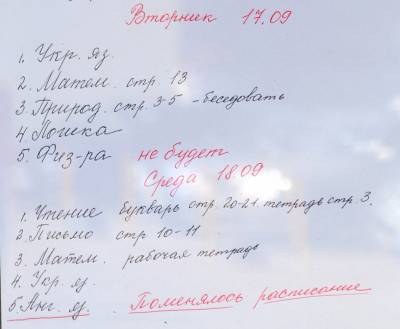 Вторник 17.09
1. Укр. яз.
2. Матем. стр. 13
3. Природ. стр. 3-5 - беседовать
4 Логика
5. Физ-ра не будет
Среда 18.09
1. Чтение букварь стр. 20-21. тетрадь стр 3.
2. Письмо стр 10-11
3. Матем. рабочая тетрадь
4. Укр. яз.
5. Анг. яз. Поменялось расписание